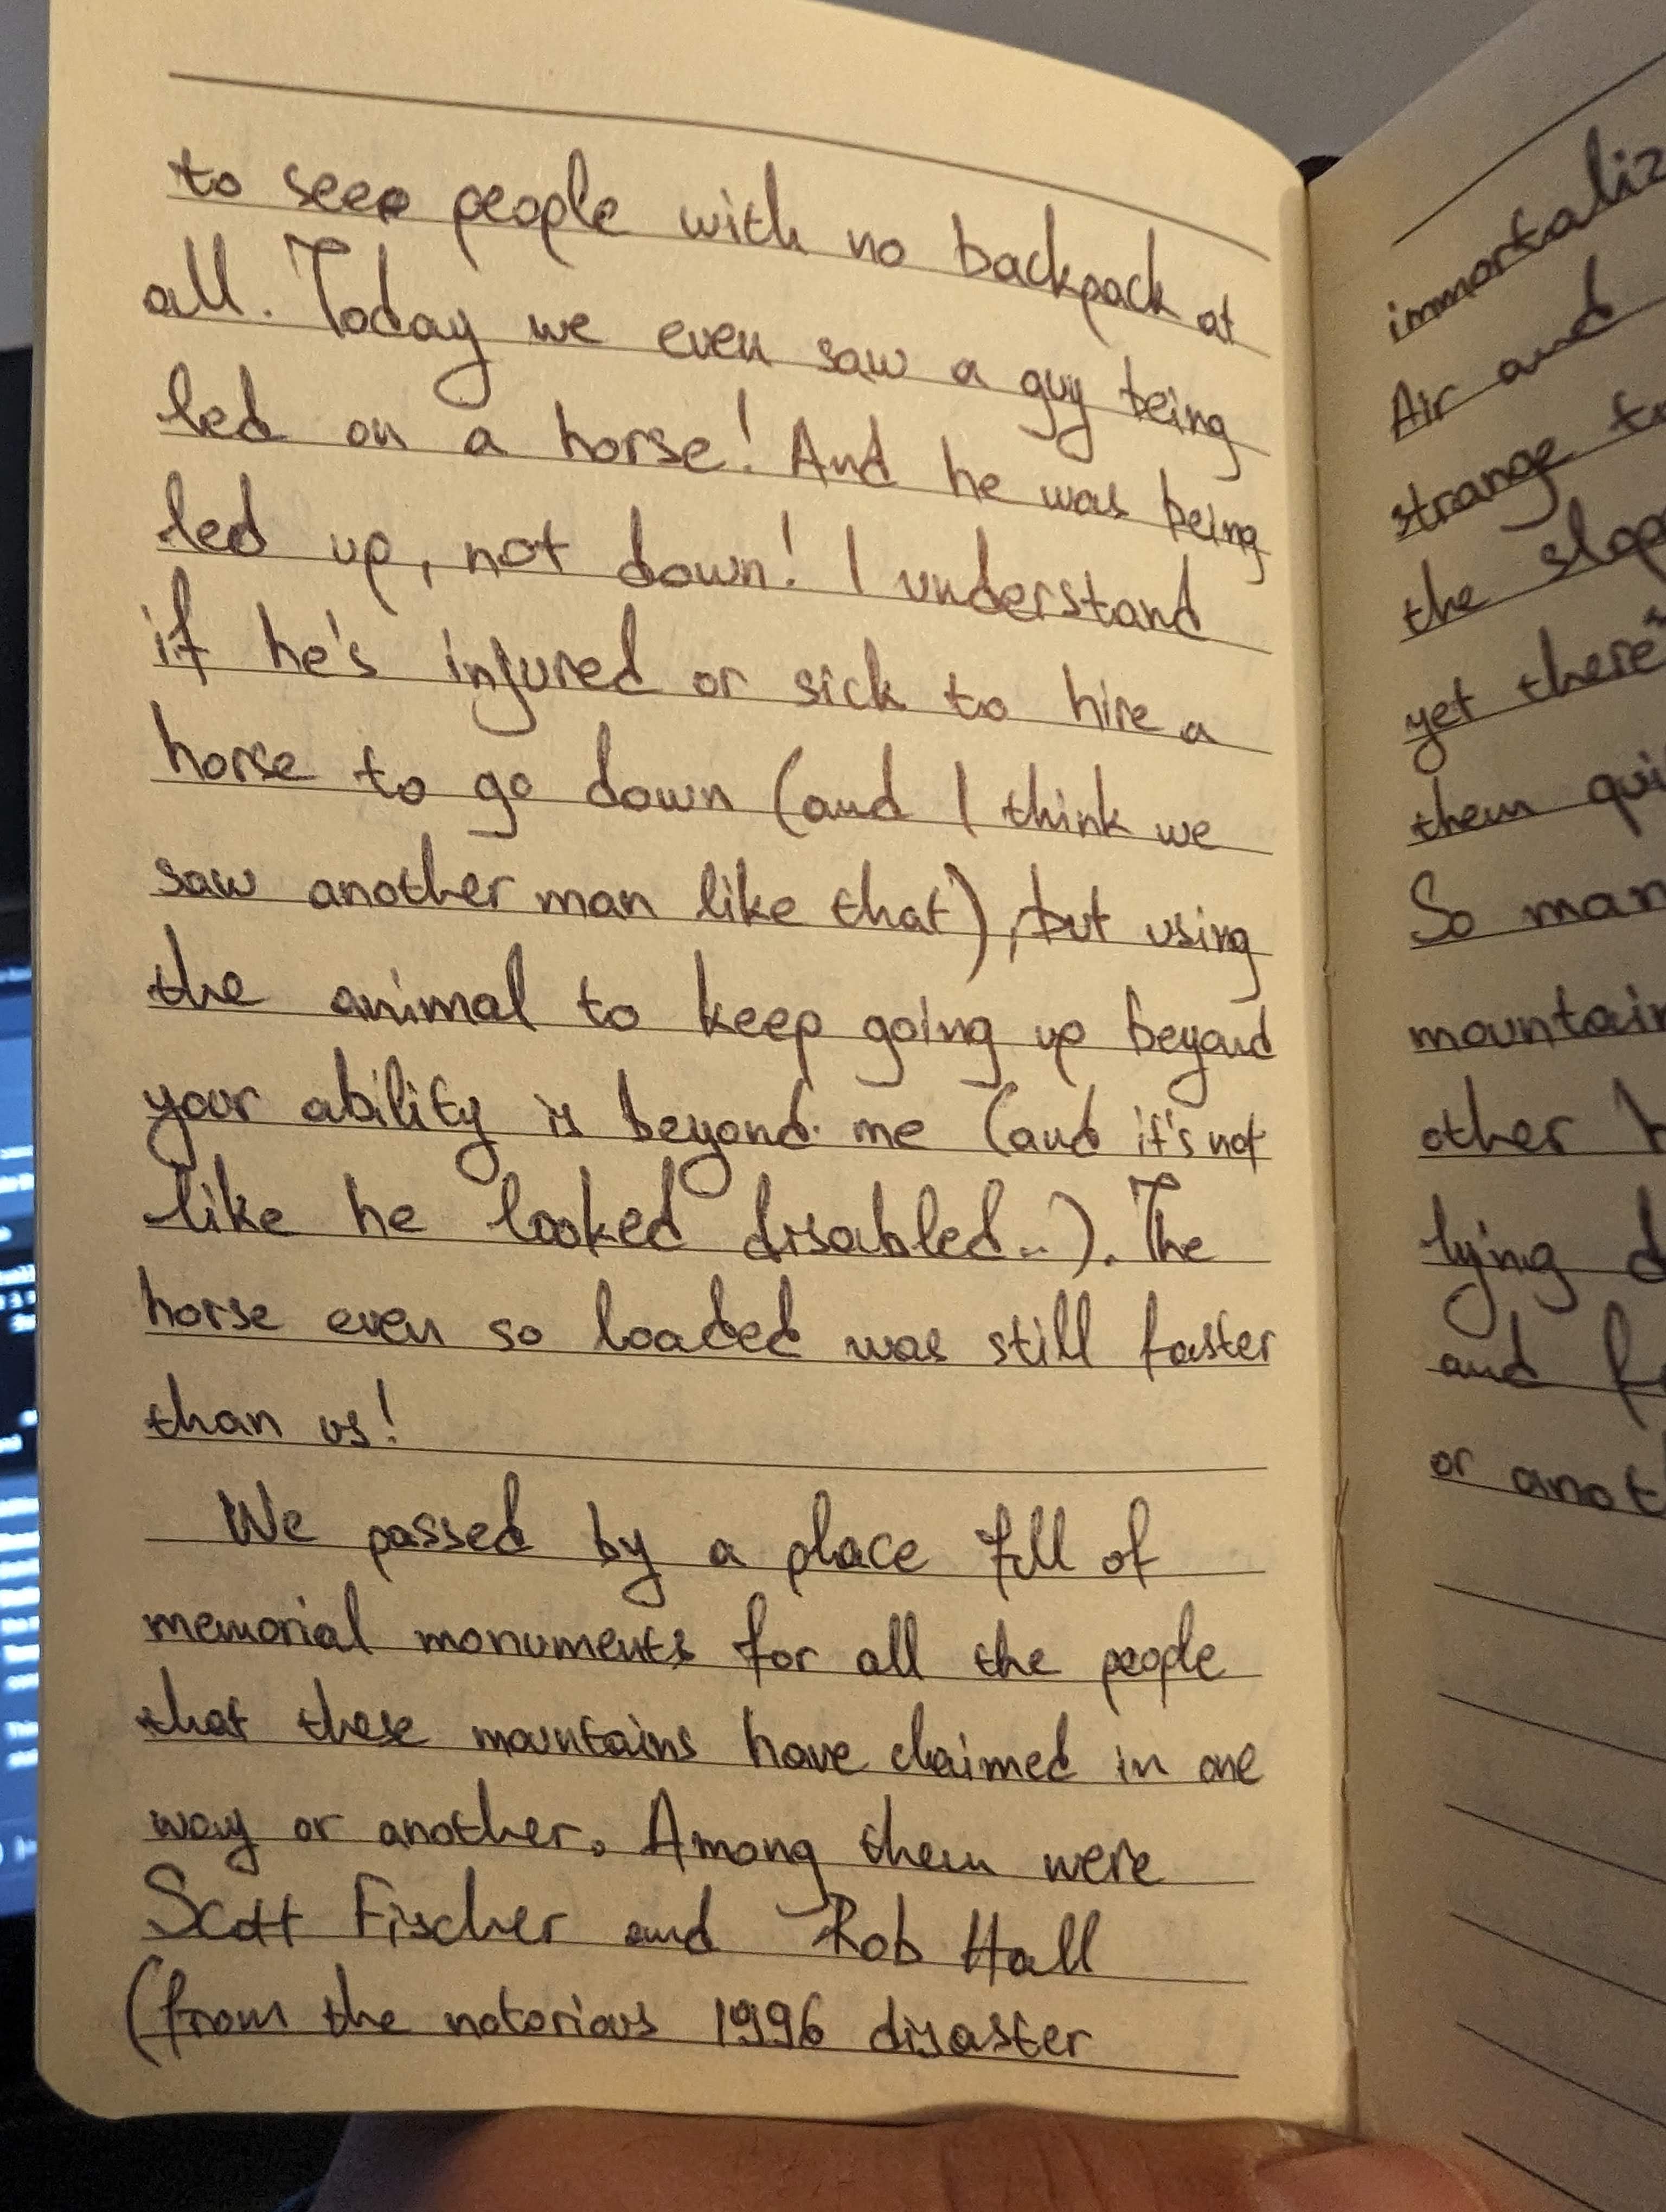 to see people with no backpack at
all. Today we even saw a guy being
led on a horse! And he was being
led up, not down! I understand
if he's injured or sick to hire a
horse to go down (and I think we
saw another man like that), but using
the animal to keep going up beyond
your ability is beyond me (and it's not
like he looked disabled...). The
horse even so loaded was still faster
than us!
We passed by a place full of
memorial monuments for all the people
that these mountains have claimed in one
way or another. Among them were
Scott Fischer and Rob Hall
(from the notorious 1996 disaster
Air and
strange
the
yet
them
So
other
lying
and
or